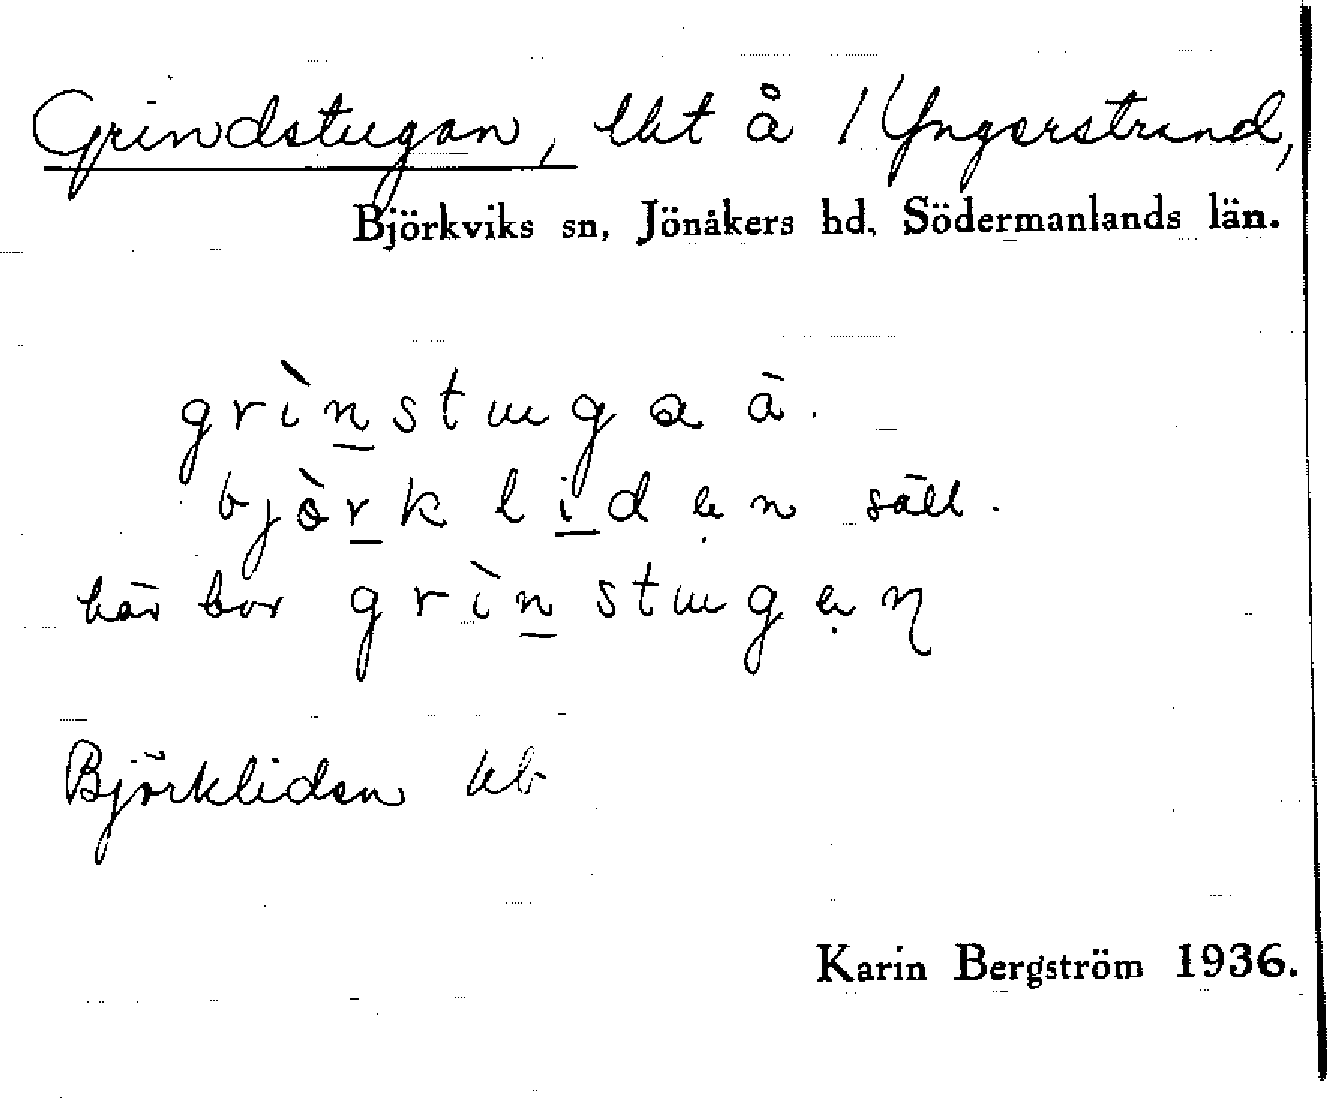 Grindstugan, lht å 1 Yngerstrand,
Björkviks sn, Jönåkers hd, Södermanlands län.
grìn̲stuga ā.
bjòr̲kli̲dẹn säll.
här bor grìn̲stugẹn
Björkliden kb
Karin Bergström 1936.